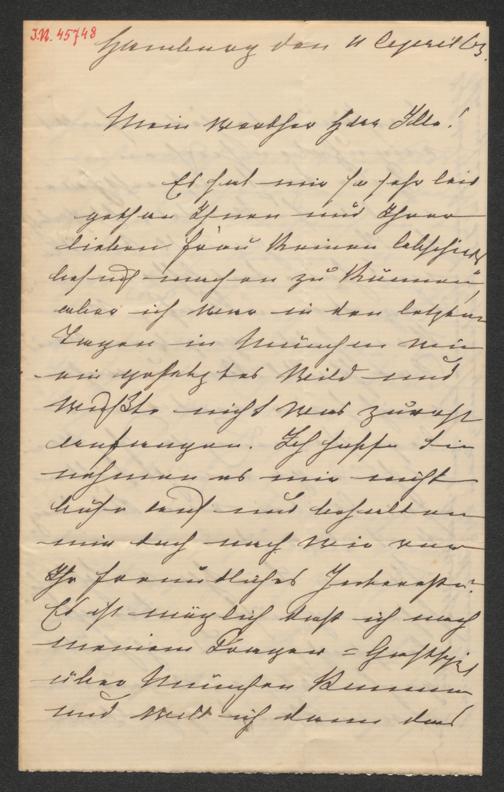 J.N. 45748
Hamburg den 11 April 63.
Mein werther Herr Ille!
Es hat mir so sehr leid
gethan Ihnen und Ihrer
lieben Frau keinen Abschieds
besuch machen zu können,
aber ich war in den letzten
Tagen in München wie
ein gehetztes Wild und
wußte nicht was zuerst
anfangen. Ich hoffe Sie
nehmen es mir nicht
böse auf und behalten
mir doch nach wie vor
Ihr freundliches Interesse.
Es ist möglich daß ich nach
meinem Prager = Gastspiel
über München komme
und will ich dann das